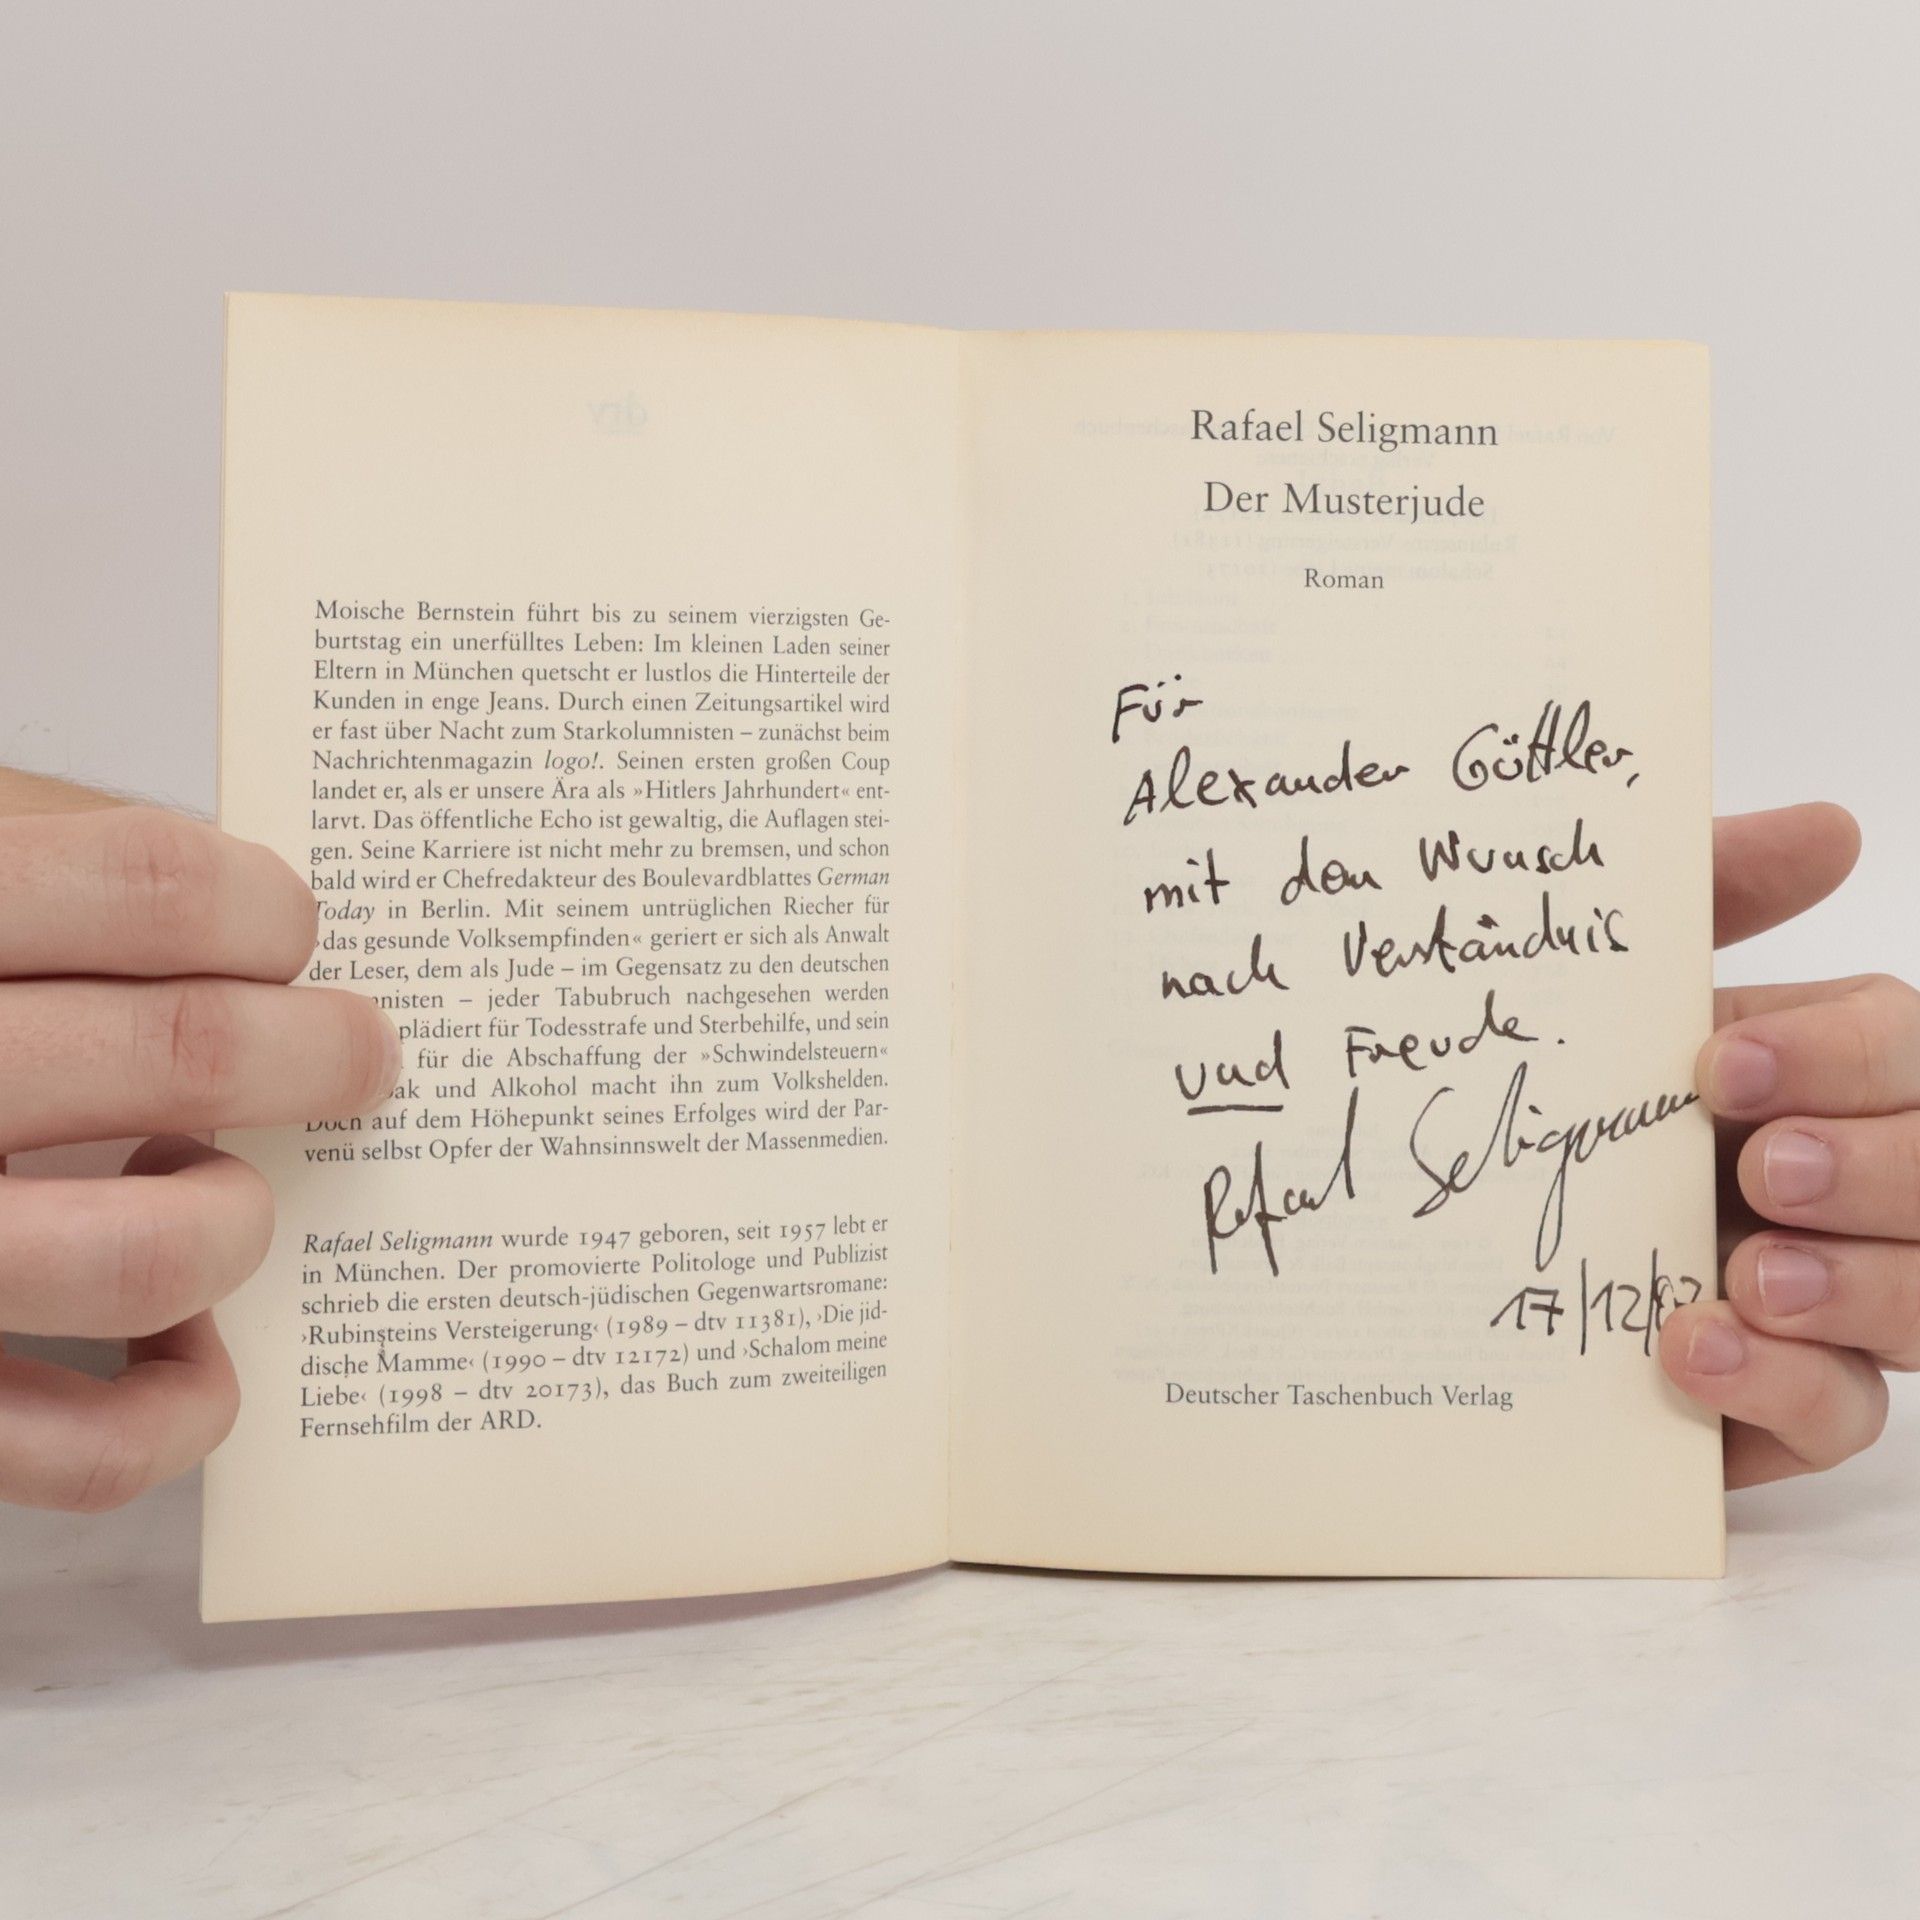 Moische Bernstein führt bis zu seinem vierzigsten Ge-
burtstag ein unerfülltes Leben: Im kleinen Laden seiner
Eltern in München quetscht er lustlos die Hinterteile der
Kunden in enge Jeans. Durch einen Zeitungsartikel wird
er fast über Nacht zum Starkolumnisten – zunächst beim
Nachrichtenmagazin logo!. Seinen ersten großen Coup
landet er, als er unsere Ära als »Hitlers Jahrhundert« ent-
larvt. Das öffentliche Echo ist gewaltig, die Auflagen stei-
gen. Seine Karriere ist nicht mehr zu bremsen, und schon
bald wird er Chefredakteur des Boulevardblattes German
Today in Berlin. Mit seinem untrüglichen Riecher für
›das gesunde Volksempfinden« geriert er sich als Anwalt
der Leser, dem als Jude – im Gegensatz zu den deutschen
nnisten – jeder Tabubruch nachgesehen werden
plädiert für Todesstrafe und Sterbehilfe, und sein
für die Abschaffung der »Schwindelsteuern«
ak und Alkohol macht ihn zum Volkshelden.
Doch auf dem Höhepunkt seines Erfolges wird der Par-
venü selbst Opfer der Wahnsinnswelt der Massenmedien.
Rafael Seligmann wurde 1947 geboren, seit 1957 lebt er
in München. Der promovierte Politologe und Publizist
schrieb die ersten deutsch-jüdischen Gegenwartsromane:
›Rubinsteins Versteigerung‹ (1989 – dtv 11381), ›Die jid-
dische Mamme‹ (1990 – dtv 12172) und ›Schalom meine
Liebe‹ (1998 – dtv 20173), das Buch zum zweiteiligen
Fernsehfilm der ARD.
Rafael Seligmann
Der Musterjude
Roman
Für
Alexander Güttler,
mit dem Wunsch
nach Verständnis
und Freude.
Rafael Seligmann
17/12/02
Deutscher Taschenbuch Verlag